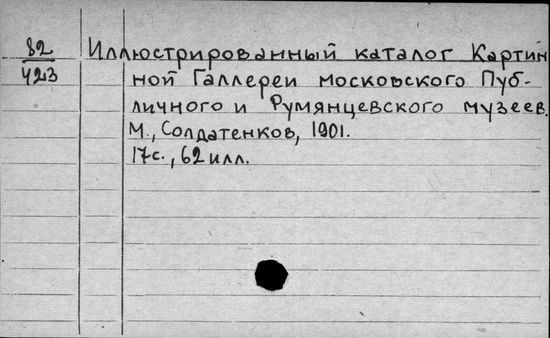 82
423
Иллюстрированный каталог Картин
ной Галлереи московского Пуб-
личного и Румянцевского музеев.
М., Солдатенков, 1901.
17с., 62 илл.